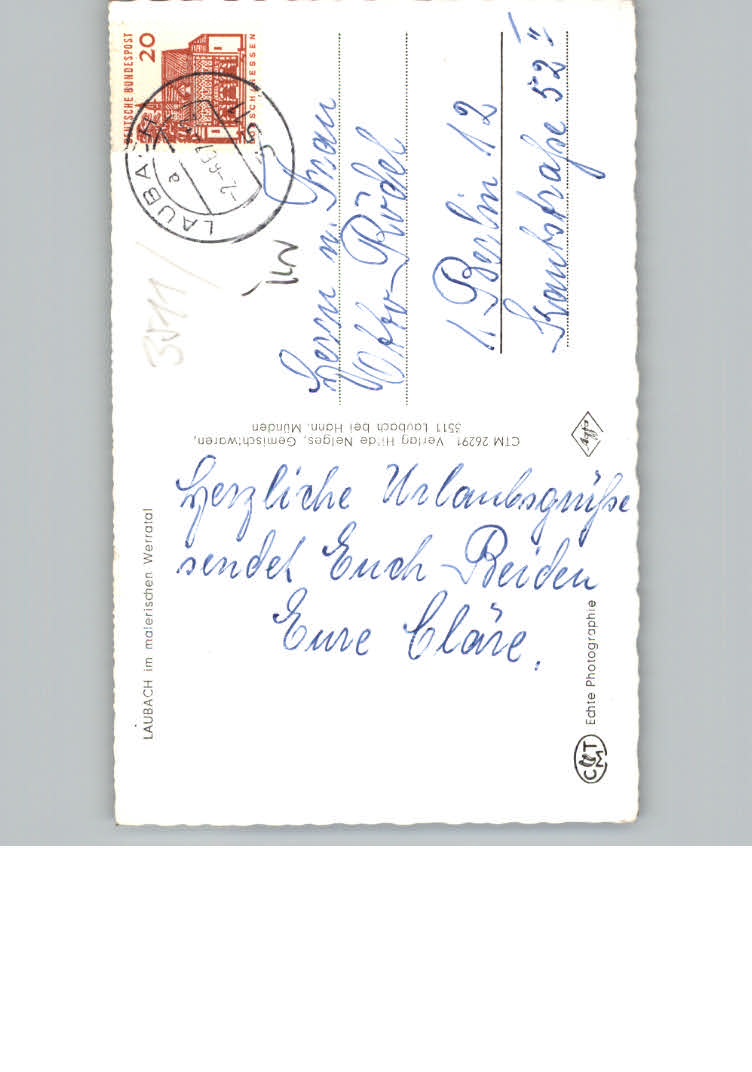 DEUTSCHE BUNDESPOST
20
LORSCH/HESSEN
LAUBACH
a
3511
Herrn u. Frau
Otto Rödel
1 Berlin 12
Kantstraße 52 II
CTM 26291 Verlag Hilde Nelges, Gemischtwaren,
3511 Laubach bei Hann. Münden
Agfa
LAUBACH im malerischen Werratal
Herzliche Urlaubsgrüße
sendet Euch Beiden
Eure Cläre.
Echte Photographie